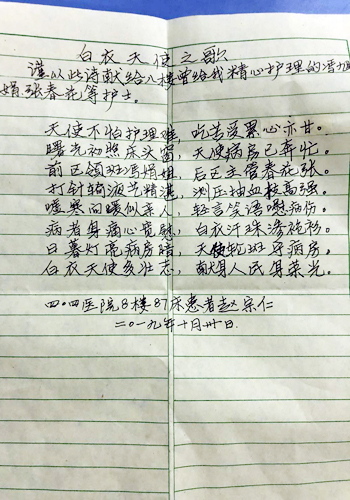 白衣天使之歌
谨以此诗献给八楼曾给我精心护理的冯娟
娟张春花等护士。
天使不怕护理难，吃苦受累心亦甘。
曙光初照床头窗，天使病房已奔忙。
前区领班冯娟姐，后区主管春花张。
打针输液艺精湛，测压抽血技高强。
嘘寒问暖似亲人，轻言笑语慰病伤。
病者身痛心觉慰，白衣汗珠渗袍衫。
日暮灯亮病房静，天使轮班守病房。
白衣天使多壮志，献身人民最荣光。
四〇四医院8楼87床患者赵宗仁
二〇一九年十月卅日